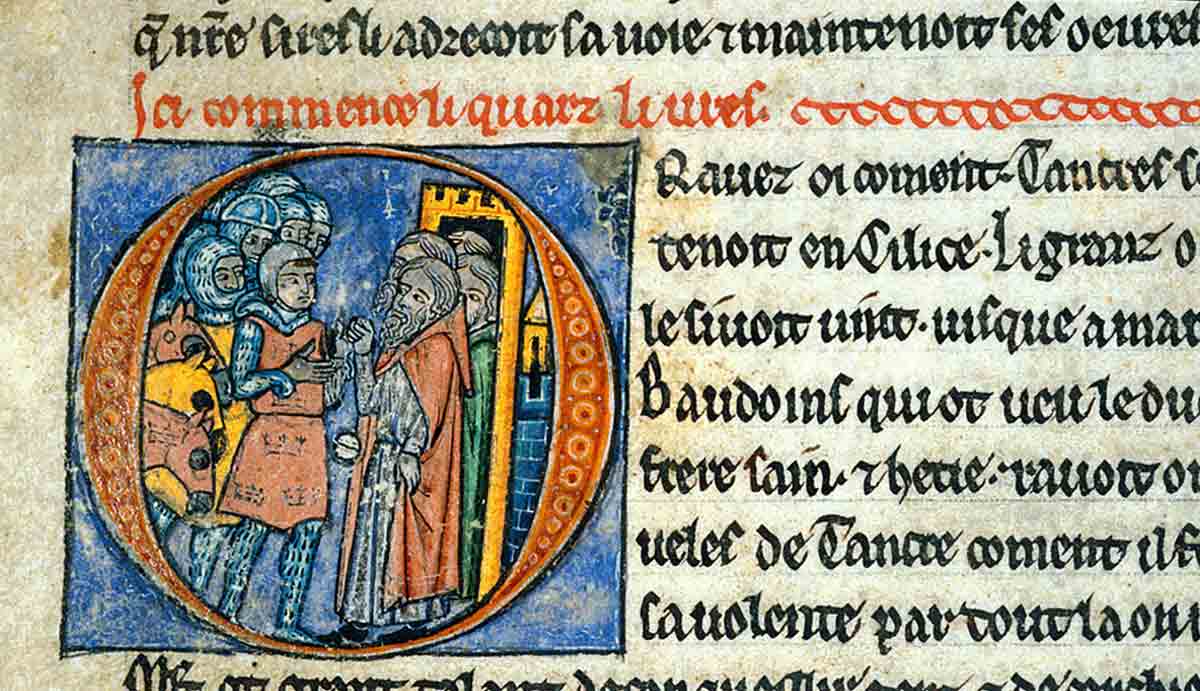 q̃ nr̃e sires li adrecoit sa uoie ⁊ maintenoit ses oeures
Ici commence li quarz liures.
O
Rauez oi coment Tancres se
tenoit en Cilice. Li granz o
le siuoit
Baudoins qui ot ueu le du
frere sain ⁊ hetie. rauoit o
ueles de Tancre coment il
sa uolente par tout la